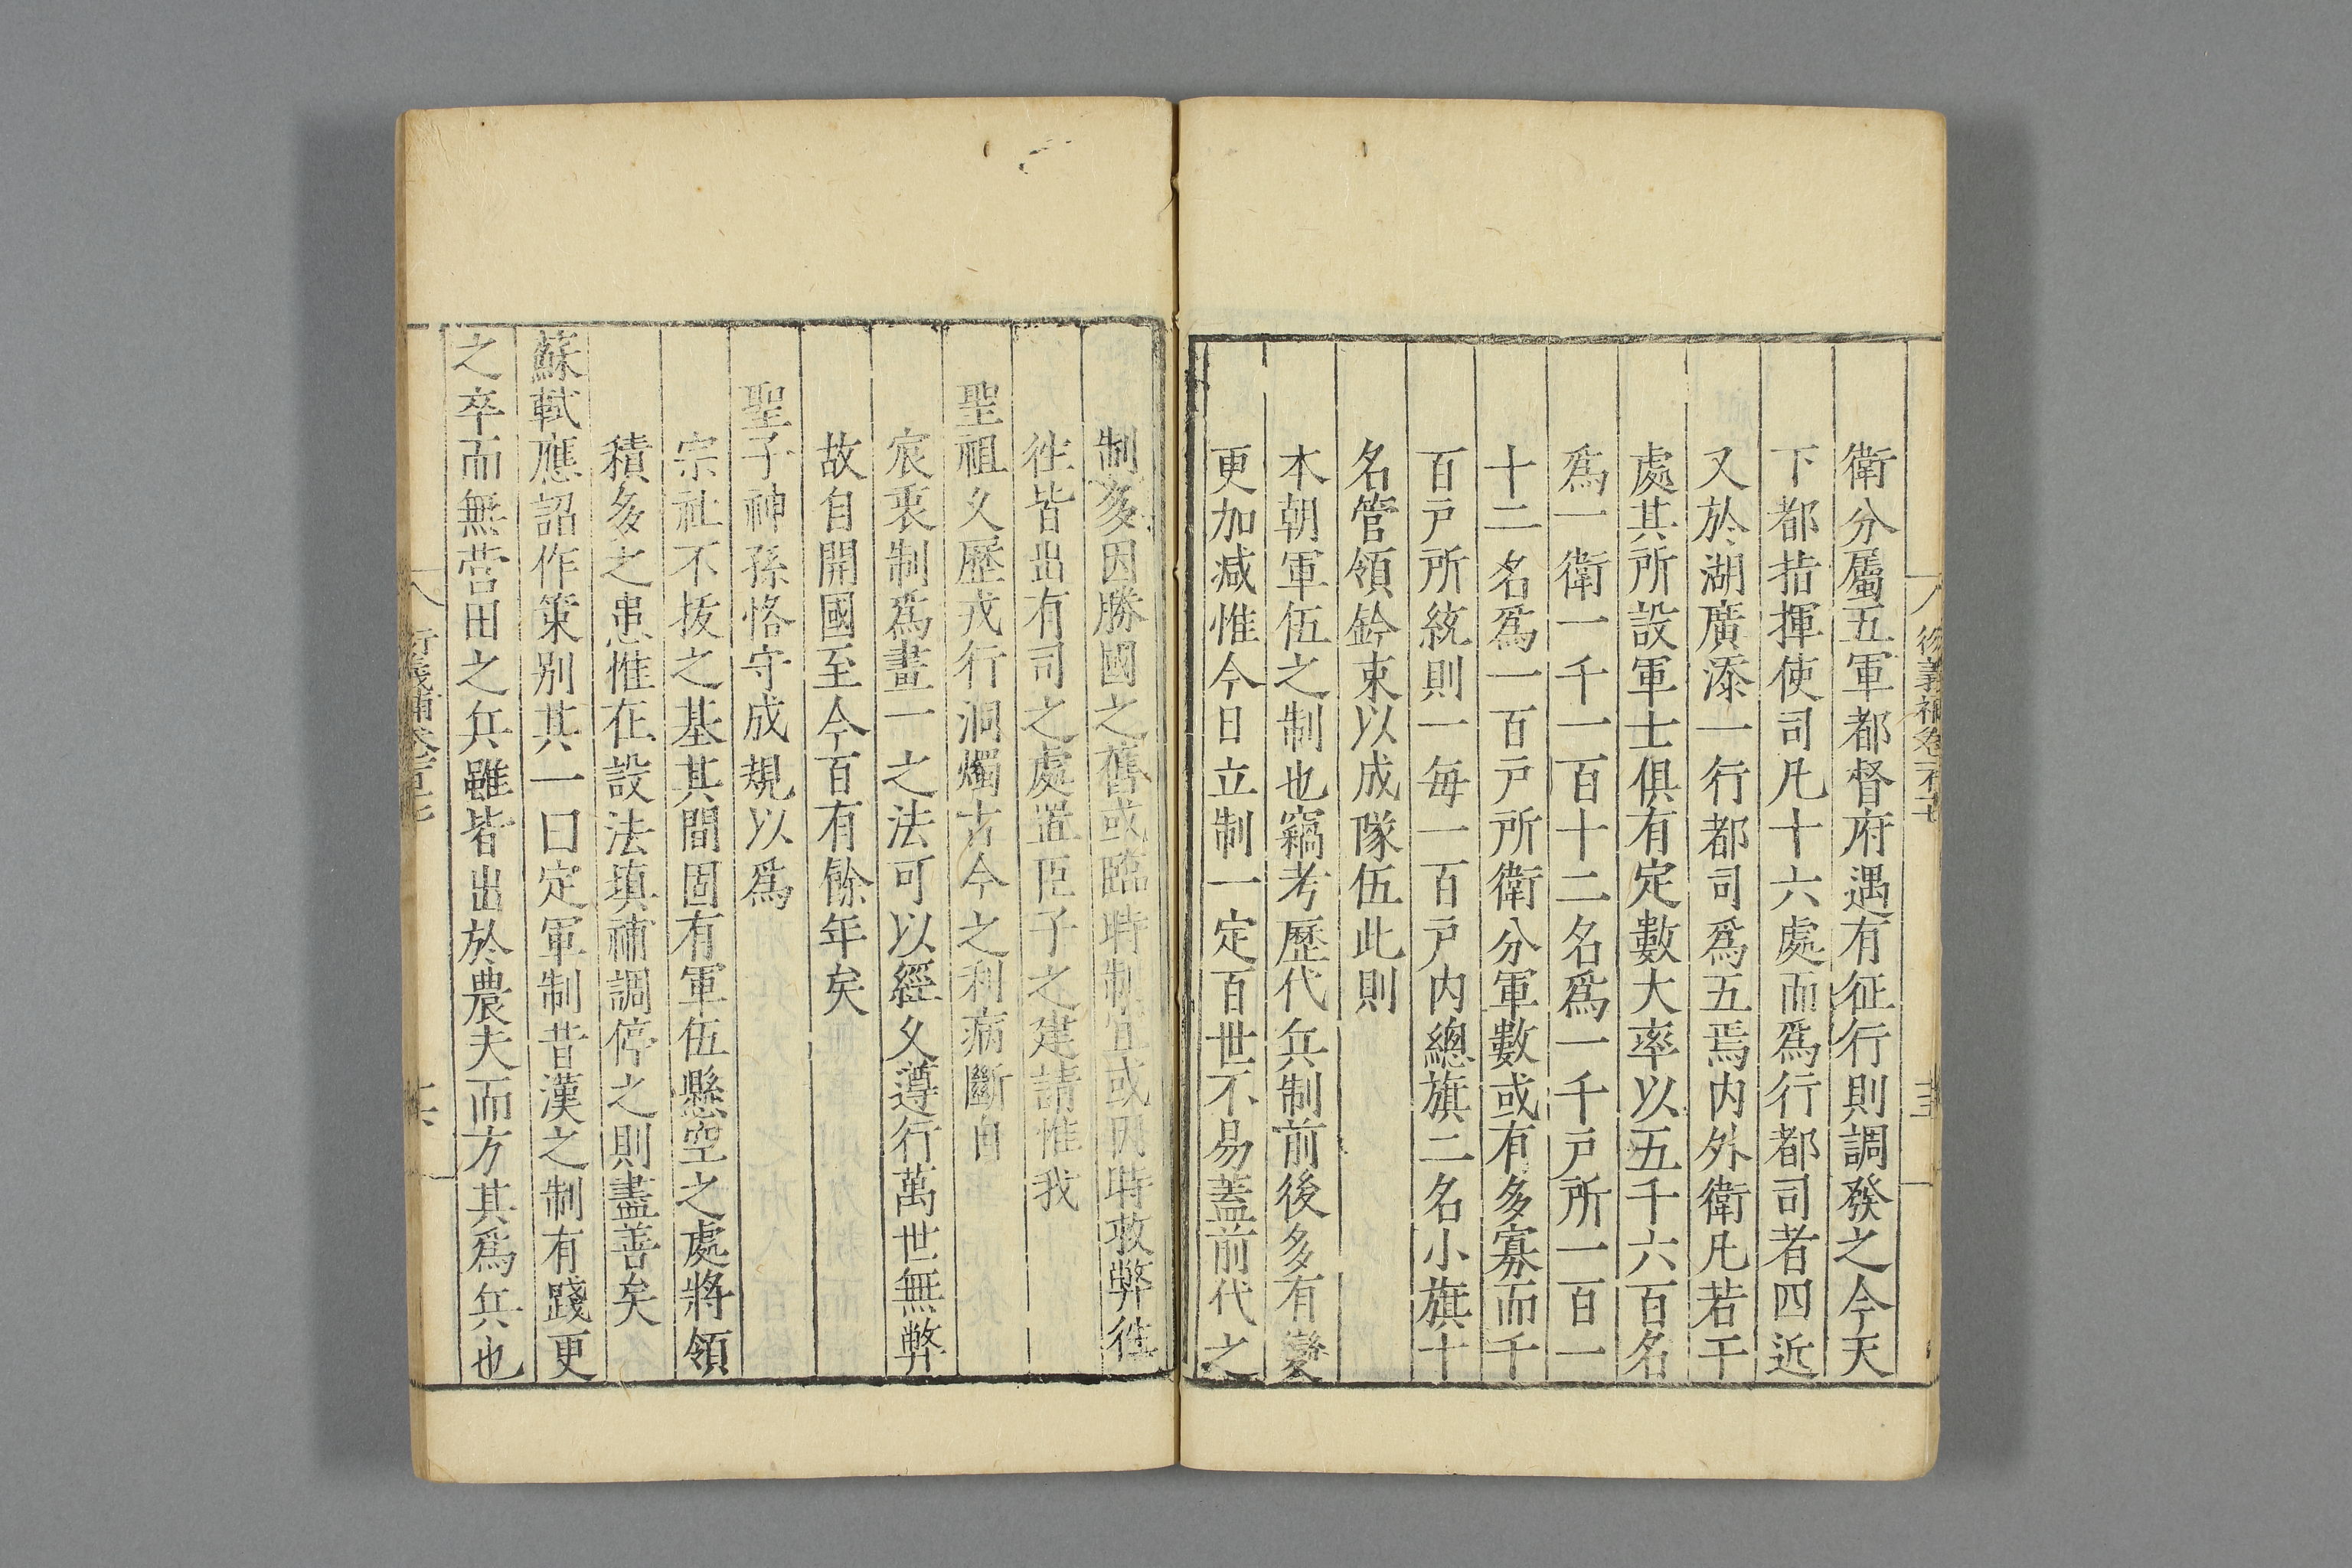 衛分屬五軍都督府遇有征行則調發之今天
下都指揮使司凡十六處而爲行都司者四近
又於湖廣添一行都司爲五焉内外衛凡若干
處其所設軍士俱有定數大率以五千六百名
爲一衛一千一百十二名爲一千戸所一百一
十二名爲一百戸所衛分軍數或有多寡而千
百戸所統則一每一百戸内總旗二名小旗十
名管領鈐束以成隊伍此則
本朝軍伍之制也竊考歷代兵制前後多有變
更加减惟今日立制一定百世不易蓋前代之
制多因勝國之舊或臨時制宜或因時救弊徃
徃皆出有司之處置臣子之建請惟我
聖祖乆歷戎行洞燭古今之利病斷自
宸衷制爲畫一之法可以經乆遵行萬世無弊
故自開國至今百有餘年矣
聖子神孫恪守成規以爲
宗社不拔之基其間固有軍伍懸空之處將領
積多之患惟在設法填補調停之則盡善矣
蘇軾應詔作策别其一曰定軍制昔漢之制有踐更
之卒而無营田之兵雖皆出於農夫而方其爲兵也